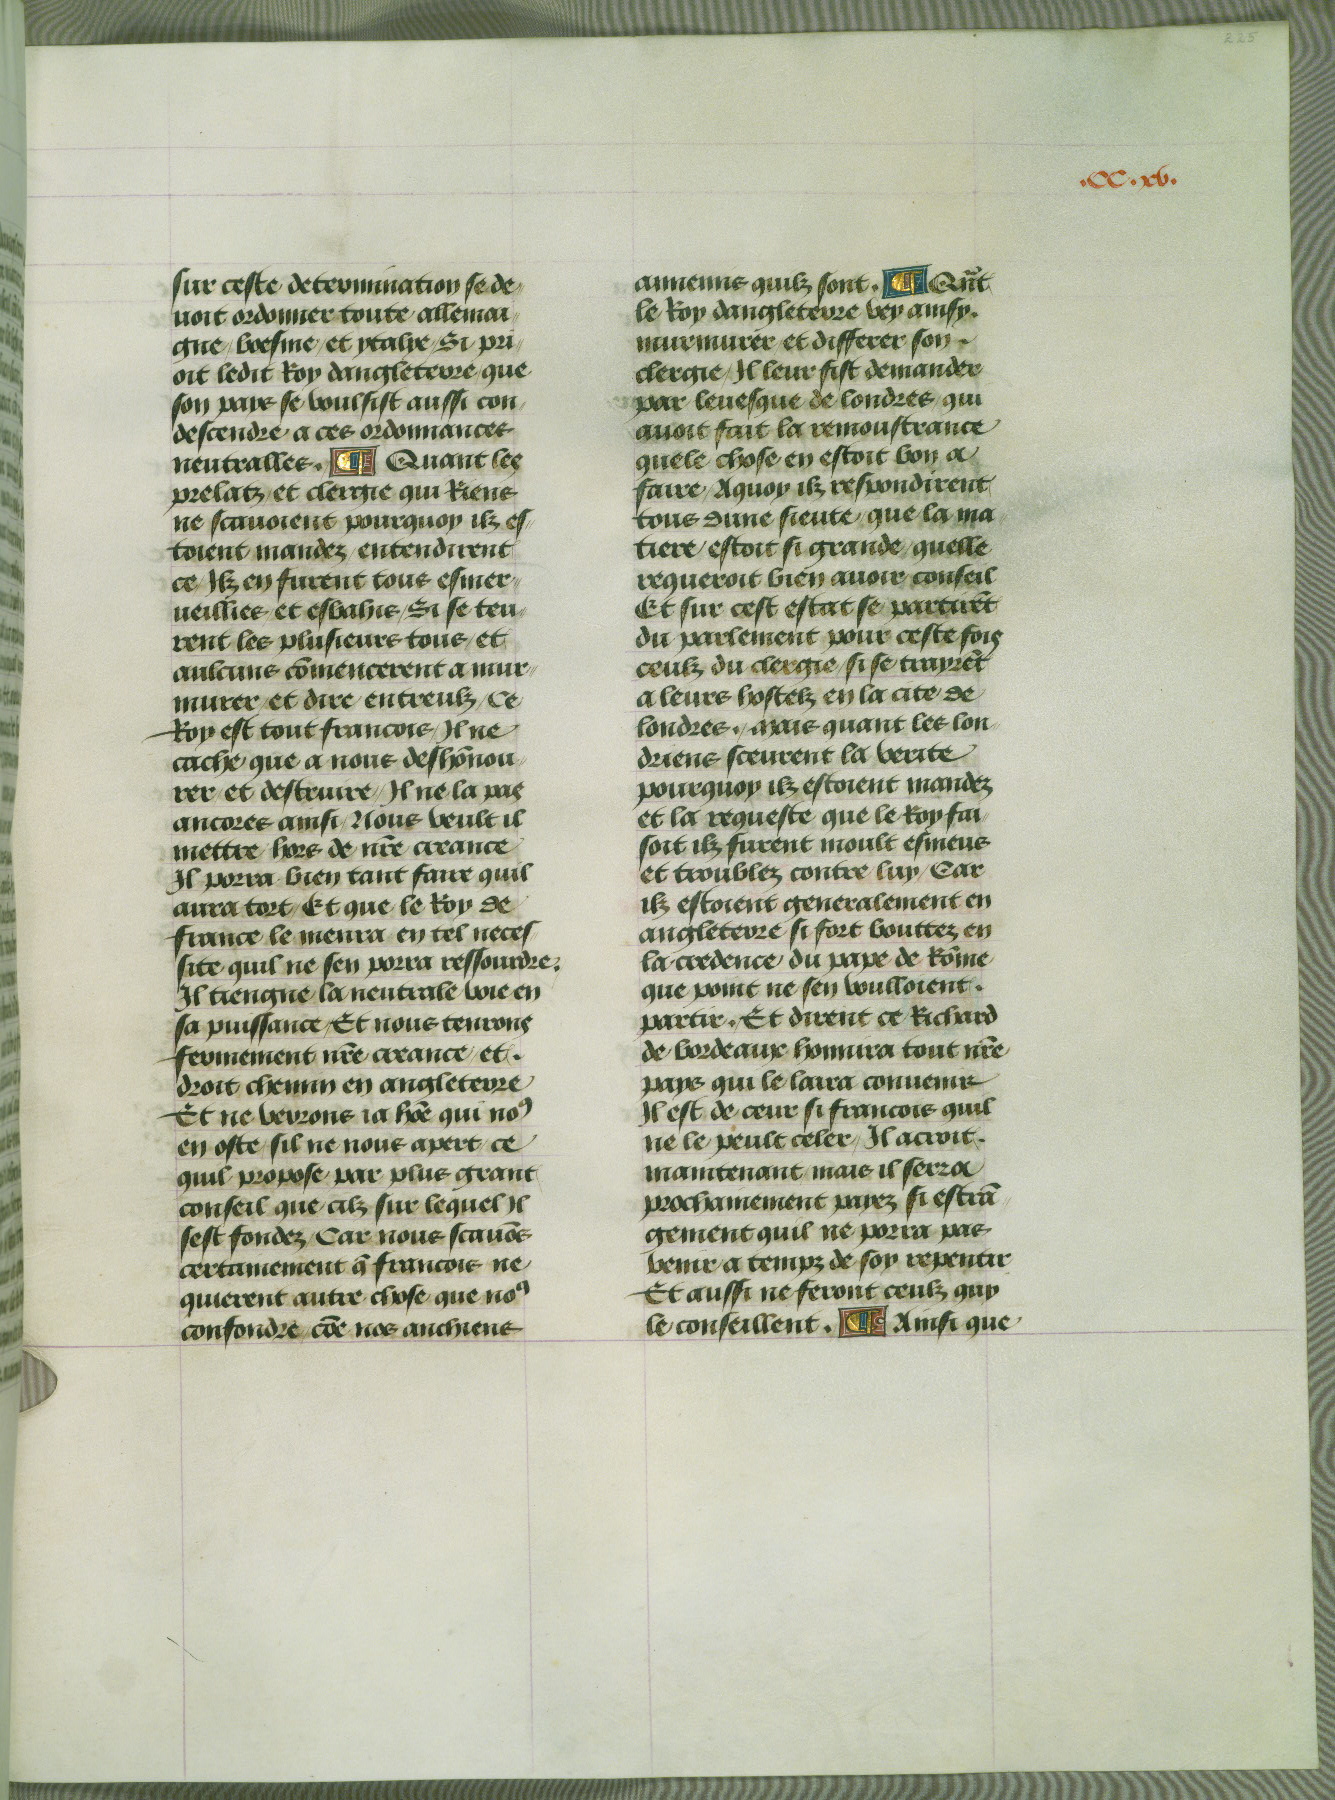 225
.CC.xv.
sur ceste determination se de
uoit ordonner toute allemai
gne / boesme / et ytalye / Si pri
oit ledit Roy dangleterre que
son pays se voulsist aussi con
descendre a ces ordonnances
neutralles. ¶ Quant les
prelatz et clergie qui Riens
ne scauoient pourquoy ilz es
toient mandez entendirent
ce / Ilz en furent tous esmer
ueillies et esbahis / Si se teu
rent les plusieurs tous / et
aulcuns cōmencerent a mur
murer et dire entreulz / Ce
Roy est tout francois / Il ne
cache que a nous deshōnou
rer et destruire / Il ne la pas
ancores ainsi / Nous veult il
mettre hors de nr̄e creance
Il porra bien tant faire quil
aura tort / Et que le Roy de
france le menra en tel neces
site quil ne sen porra ressourdre.
Il tiengne la neutrale voie en
sa puissance / Et nous tenrons
fermement nr̄e creance et .
droit chemin en angleterre
Et ne verrons ia hōe qui noꝰ
en oste / sil ne nous apert ce
quil propose par plus grant
conseil que cilz sur lequel Il
sest fondez / Car nous scauōs
certainement q̄ francois ne
quierent autre chose que noꝰ
confondre / cōe nos anchiens
annemis quilz sont. ¶ Qūat
le Roy dangleterre vey ainsy.
murmurer et differer son .
clergie / Il leur fist demander
par leuesque de londres qui
auoit fait la remoustrance
quele chose en estoit bon a
faire / Aquoy ilz respondirent
tous dune sieute / que la ma
tiere estoit si grande / quelle
requeroit bien auoir conseil
Et sur cest estat se partirēt
du parlement pour ceste fois
ceulz du clergie / si se trayrēt
a leurs hostelz en la cite de
londres. Mais quant les lon
driens sceurent la verite
pourquoy ilz estoient mandez
et la requeste que le Roy fai
soit ilz furent moult esmeus
et troublez contre luy / Car
ilz estoient generalement en
angleterre si fort bouttez en
la credence du pape de Rōme
que point ne sen voulloient .
partir. Et dirent ce Richard
de bordeaux honnira tout nr̄e
pays qui le laira conuenir
Il est de ceur si francois quil
ne le peult celer / Il acroit .
maintenant mais il serra
prochainement payez si estrā
gement quil ne porra pas
venir a tempz de soy repentir
Et aussi ne feront ceulz quy
le conseillent. ¶ Ainsi que